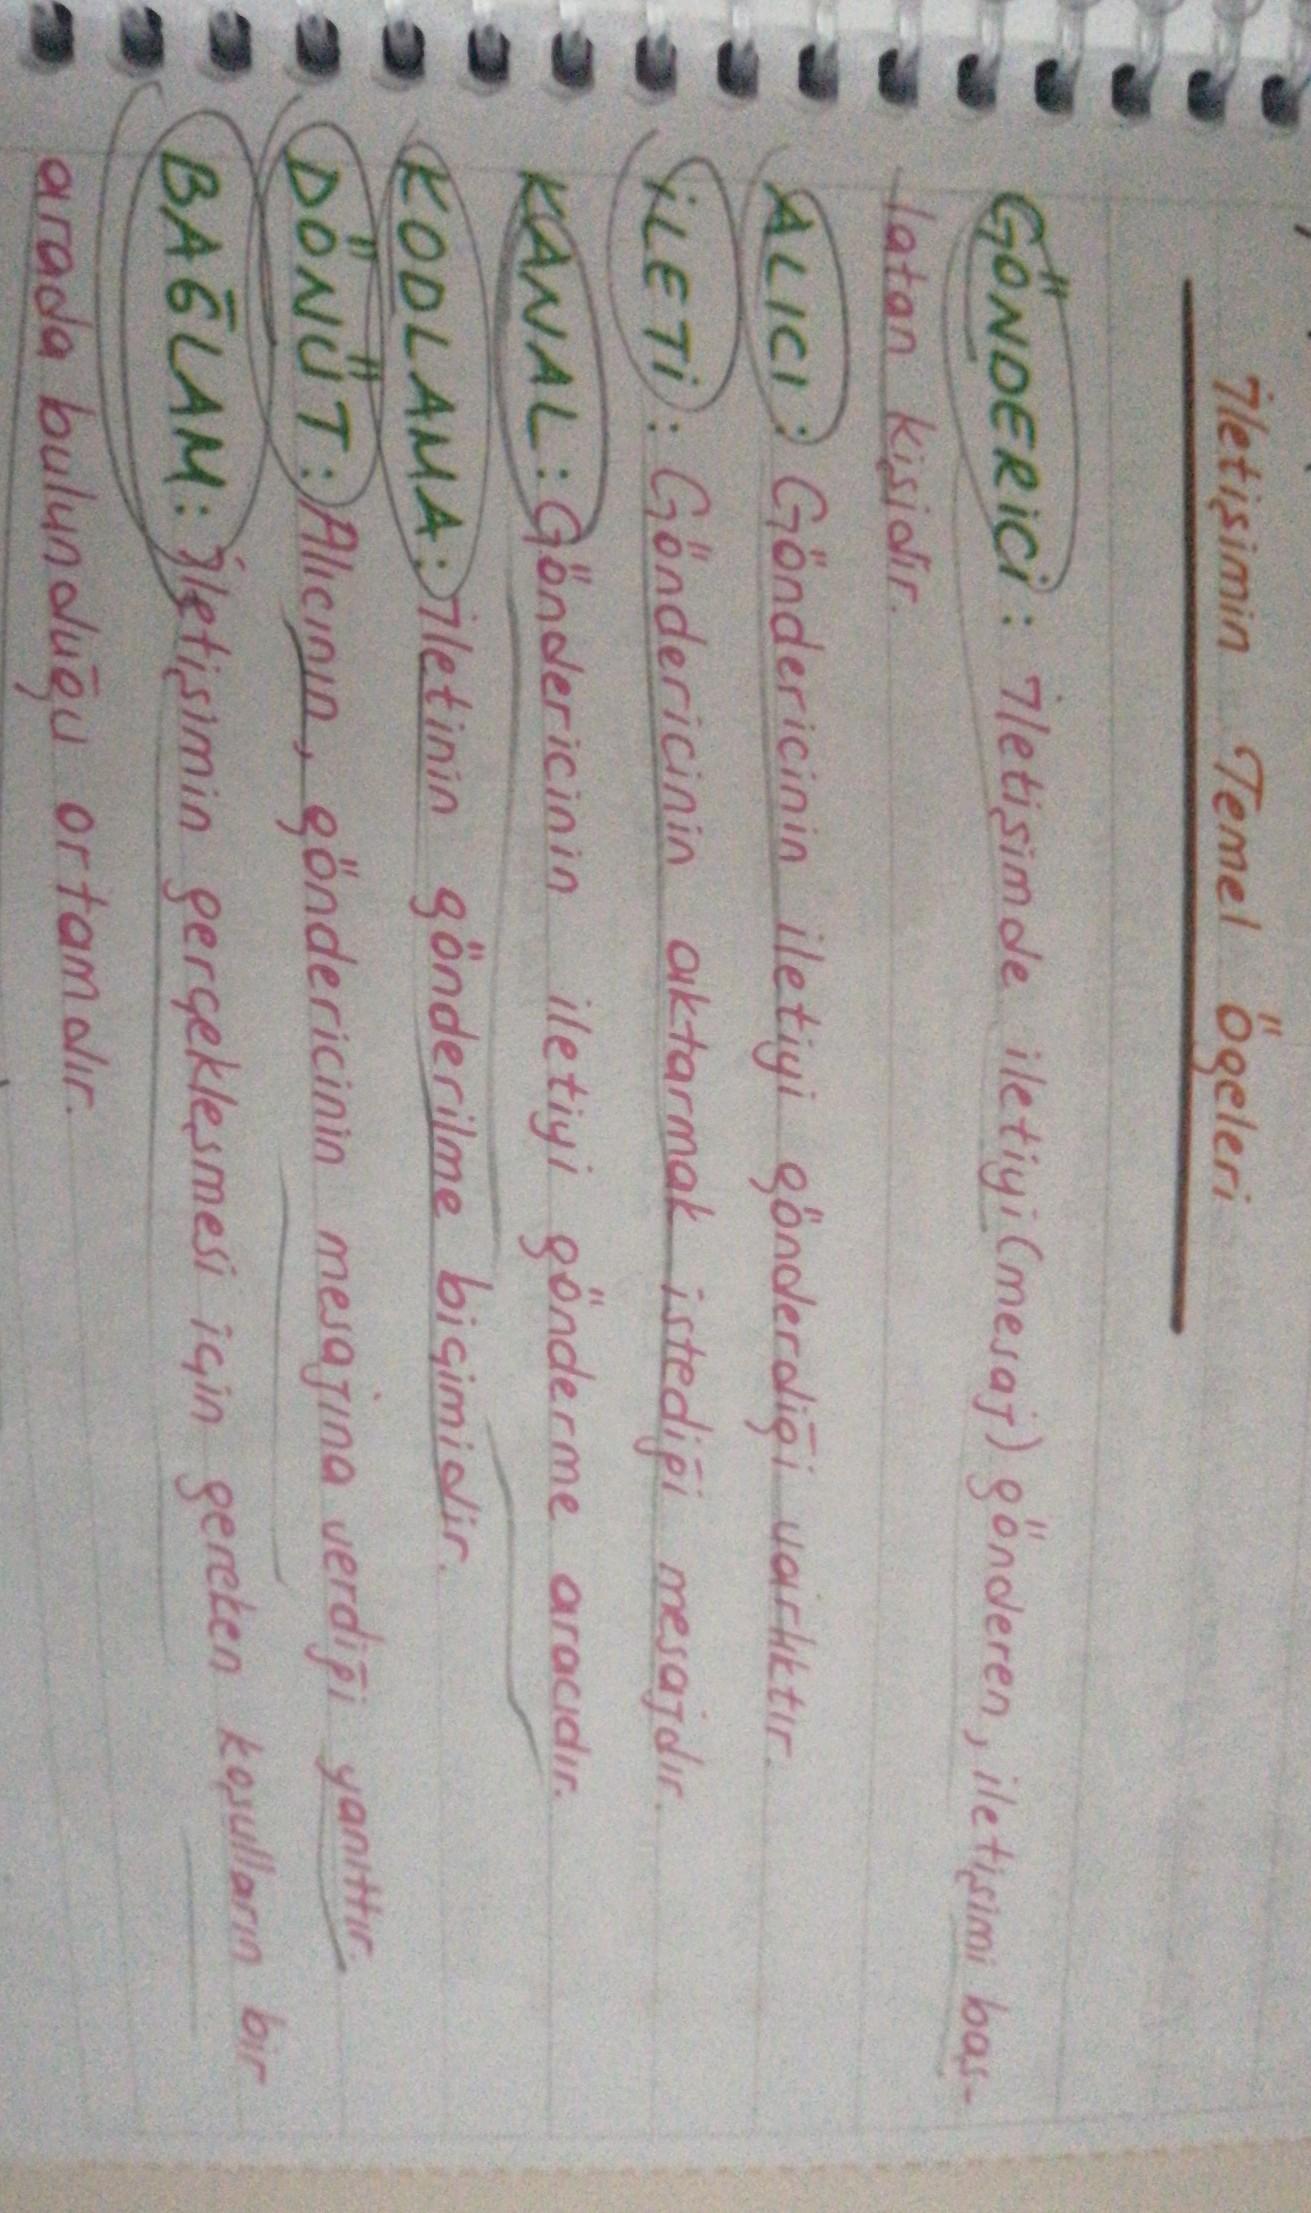 İletişimin Temel Ögeleri
GÖNDERİCİ: İletişimde iletiyi (mesaj) gönderen, iletişimi baş-
latan kişidir.
ALICI: Göndericinin iletiyi gönderdiği varlıktır.
İLETİ: Göndericinin aktarmak istediği mesajdır.
KANAL: Göndericinin iletiyi gönderme aracıdır.
KODLAMA: İletinin gönderilme biçimidir.
DÖNÜT: Alıcının, göndericinin mesajına verdiği yanıttır.
BAĞLAM: İletişimin gerçekleşmesi için gereken koşulların bir
arada bulunduğu ortamdır.